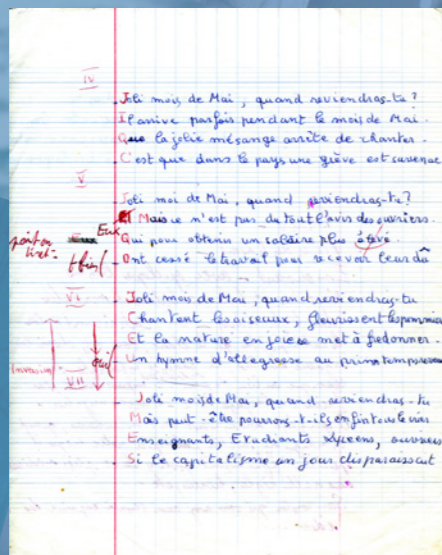 IV
Joli mois de Mai, quand reviendras-tu?
Il arrive parfois pendant le mois de Mai.
Que la jolie mésange arrête de chanter.
C'est que dans le pays une grève est survenue
V
Joli moi de Mai, quand reviendras-tu?
Eux
Mais ce n'est pas du tout l'avis des ouvriers.
point ou tiret
Qui pour obtenir un salaire plus élevé.
Ont cessé le travail pour recevoir leur dû
VI
Joli mois de Mai, quand reviendras-tu
Chantent les oiseaux, fleurissent les pommiers
Et la nature en joie se met à fredonner.
Un hymne d'allegresse au printemps
Inversion
VII
Joli mois de Mai, quand reviendras-tu
Mais peut-être pourrons-t-ils enfin
Enseignants, Etudiants, lyçeens, ouvriers
Si le capitalisme un jour disparaissait